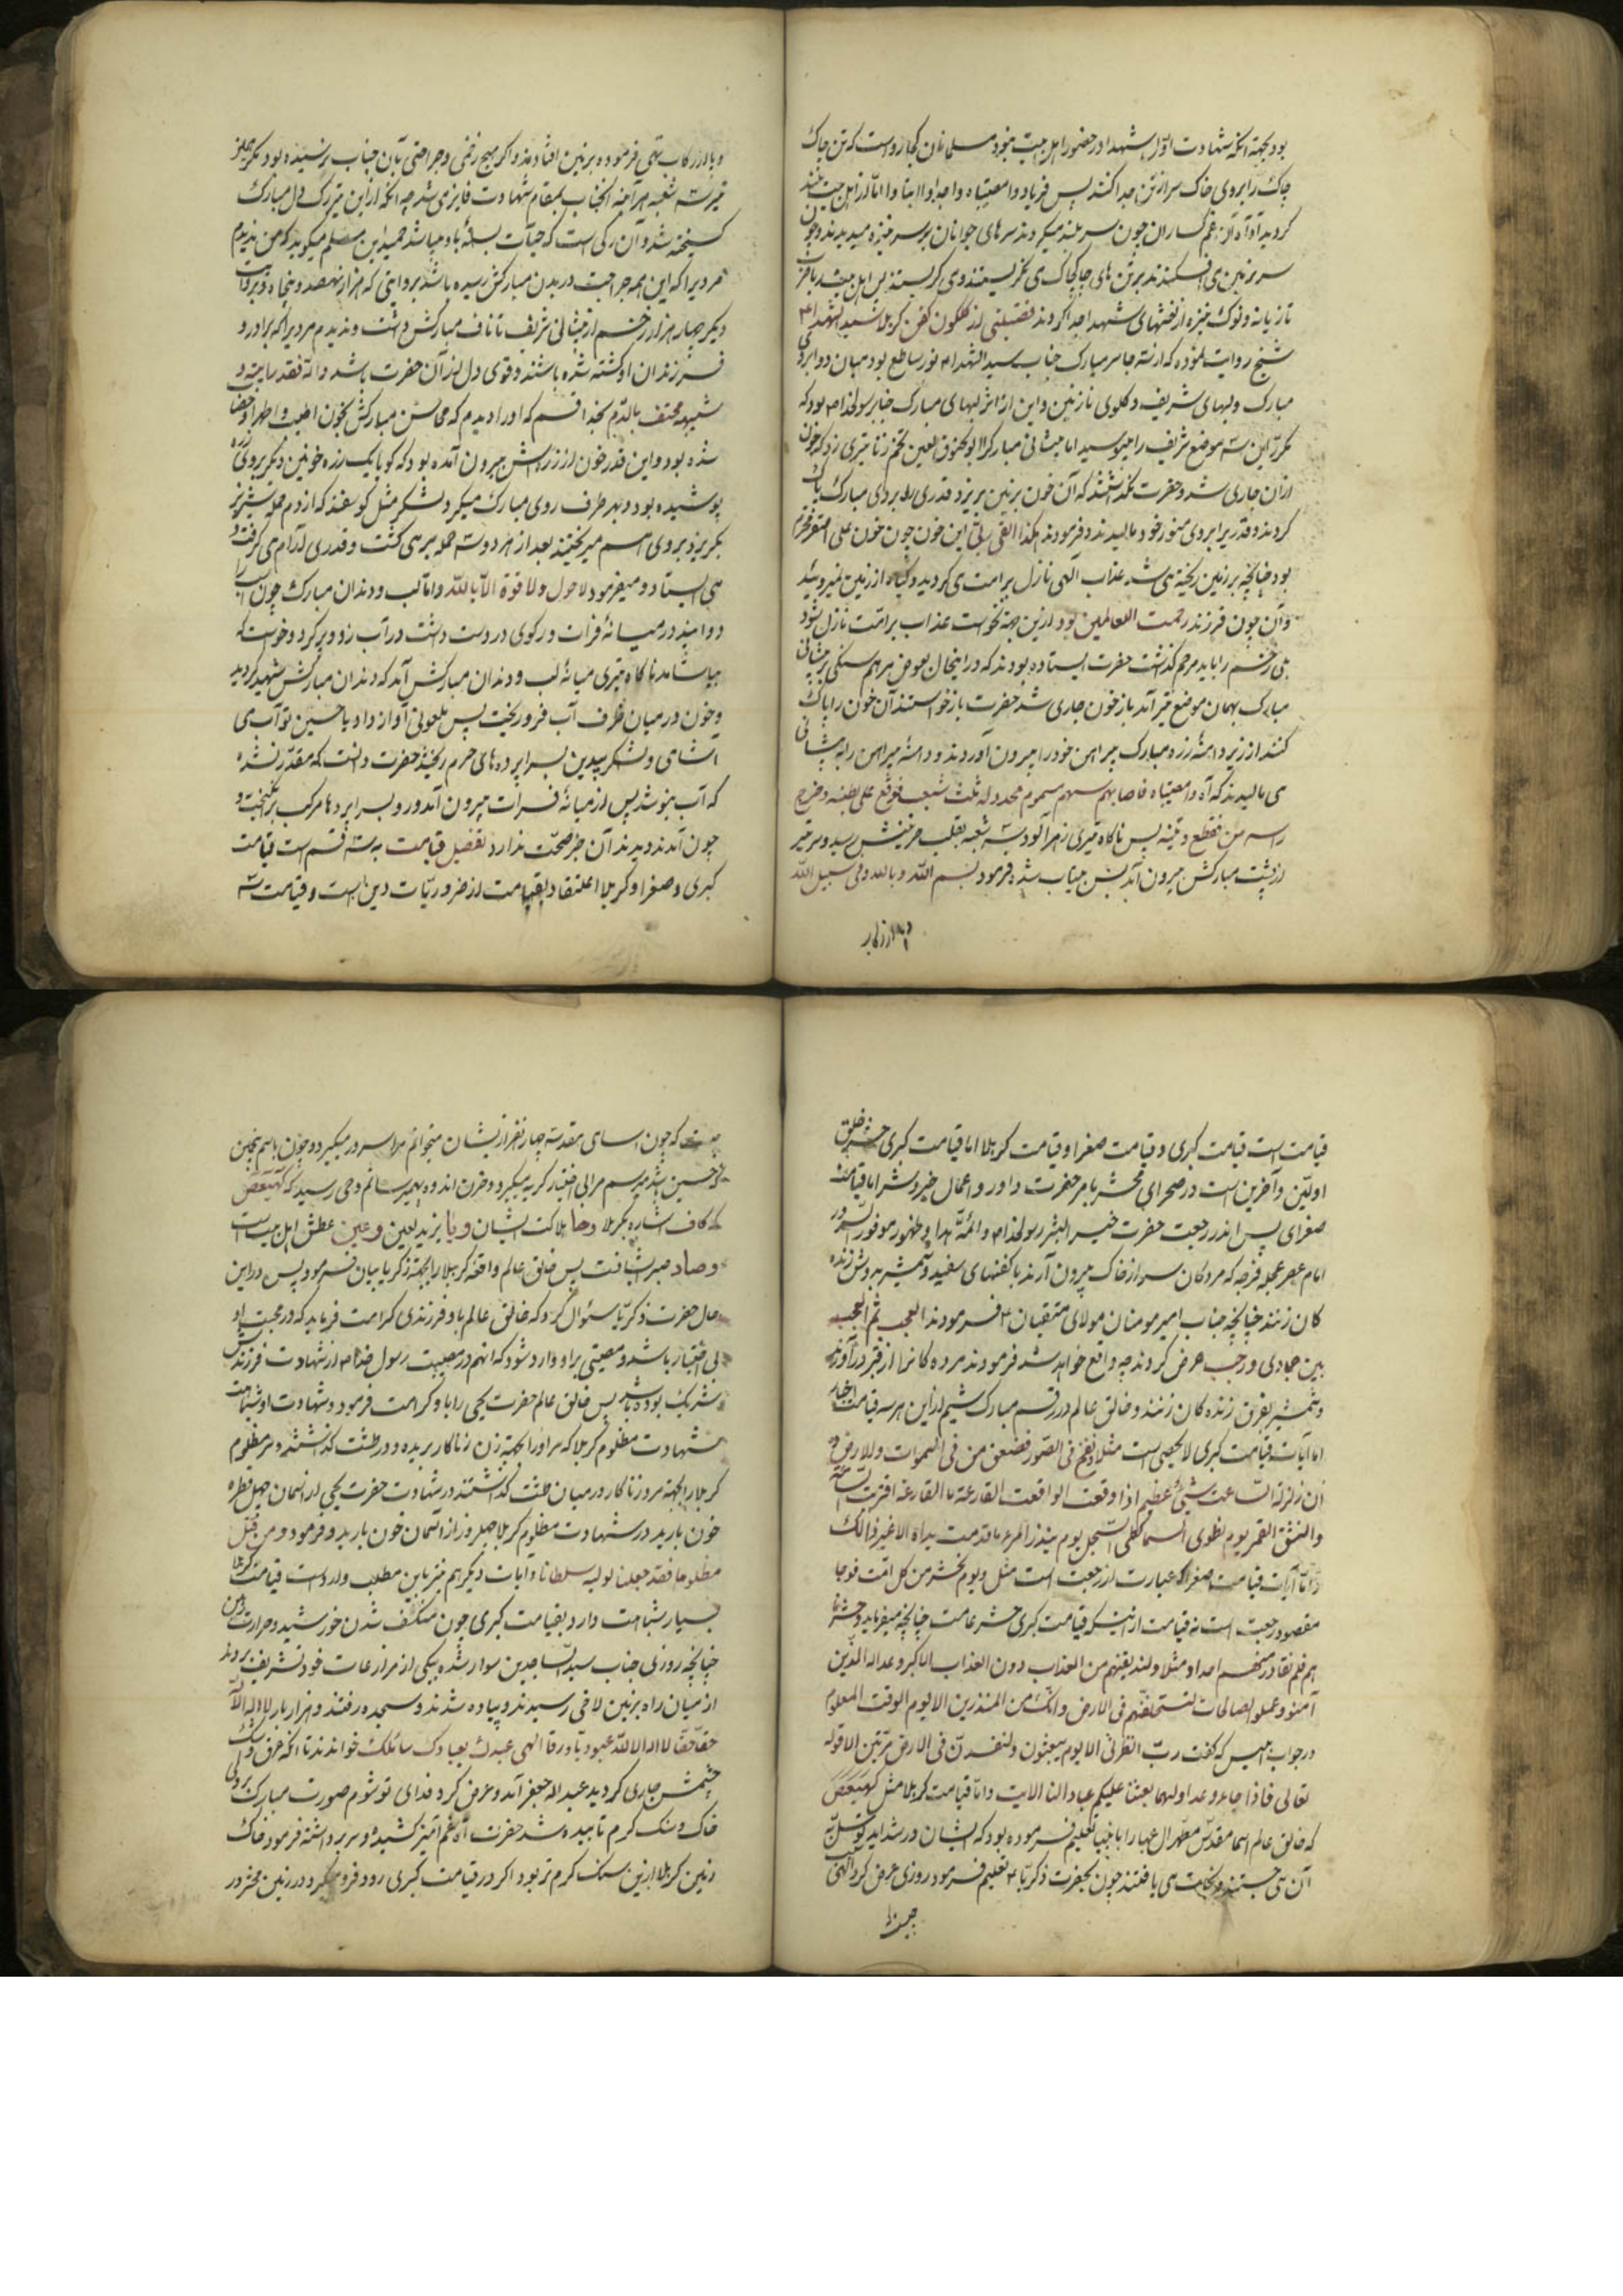 بود بجهة آنکه شهادت اوّل شهدا در حضور اهل بیت نبود مسلمانان کجا رواست که تن چاک
چاک را بروی خاک سر از تن جدا کنند پس فریاد وامصیبتاه واجداه وا ابتا واامّا از اهل بیت بلند
گردید آه آه از غم کساران چون سر بلند میکردند سرهای جوانان بر سر نیزه میدیدند و چون
سر بزمین می افکندند بر تن های چاکچاک می نگریستند و می گریستند پس اهل بیت را بضرب
تازیانه و نوک نیزه از نعشهای شهدا جدا کردند تفصیلی از گلگون کفن کربلا سید الشهدا ع
شیخ روایت نموده که از سه جا سر مبارک جناب سید الشهدا ع نور ساطع بود میان دو ابروی
مبارک و لبهای شریف و گلوی نازنین و این از اثر لبهای مبارک جناب رسولخدا ص بود که
مکرّر این سه موضع شریف را میبوسید اما پیشانی مبارک را ابو الحنوق لعین تخم زنا تیری زد که خون
از آن جاری شد و حضرت نگذاشتند که آن خون بزمین بریزد قدری را بردای مبارک پاک
کردند و قدری را بروی منور خود مالیدند و فرمودند هکذا القی ربّی این خون چون خون علی اصغر محترم
بود چنانچه بر زمین ریخته می شد عذاب الهی نازل بر امت می کردید و گیاه از زمین نمیروئید
و آن چون فرزند رحمت للعالمین بود از این جهة نخواست عذاب بر امّت نازل شود
بلی زخم را باید مرهم گذاشت حضرت ایستاده بودند که در اینحال بعوض مرهم سنگی بر پیشانی
مبارک بهمان موضع تیر آمد باز خون جاری شد حضرت باز خواستند آن خون را پاک
کنند از زیر دامنه زره مبارک پیراهن خود را بیرون آوردند و دامنه پیراهن را به پیشانی
می مالیدند که آه وامصیبتاه فاصابهم سهم مسموم محدد له ثلث شعب فوقع علی بطنه و خرج
راسه من پس ناگاه تیری زهرآلود سه شعبه بقلب حزینش رسید و سر تیر
از پشت مبارکش بیرون آمد پس بیتاب شده فرمود بسم الله و بالله و فی سبیل الله
و پا از رکاب تهی فرموده بر زمین افتادند و اگر هیچ زخمی و جراحتی بآن جناب نرسیده بود مگر همان
تیر سه شعبه هر آینه آنجناب بمقام شهادت فایز می شد چه آنکه از این تیر رگ دل مبارک
گسیخته شد و آن رگی است که حیات بسته باو میباشد حمید ابن مسلم میگوید که من ندیدم
مردیرا که این همه جراحت در بدن مبارکش رسیده باشد بروایتی که هزار و نهصد و پنجاه و بروایت
دیگر چهار هزار زخم از پیشانی شریف تا ناف مبارکش داشت و ندیدم مردیرا که برادر و
فرزندان او کشته شده باشند و قوی دل تر از آن حضرت باشد و الله فقد رایته و
شیبه مختضب بالدم بخدا قسم که او را دیدم که محاسن مبارکش بخون اطیب و اطهر او خضاب
شده بود و این قدر خون از زره اش بیرون آمده بود که گویا یک زره خونین دیگر بروی زره
پوشیده بود و بهر طرف روی مبارک میکرد لشکر مثل گوسفند که از دم حمله شیر نر
بگریزد بروی هم میریختند بعد از هر دو سه حمله بر می گشت و قدری آرام می گرفت و
می ایستاد و میفرمود لا حول و لا قوة الّا بالله و امّا لب و دندان مبارک چون اسب را
دوانید در میانه فرات و رکوی در دست داشت در آب زد و پر کرد و خواست که
بیاشامد ناگاه تیری میانه لب و دندان مبارکش آمد که دندان مبارکش شهید گردید
و خون در میان ظرف آب فرو ریخت پس ملعونی آواز داد یا حسین تو آب می
آشامی و لشکر بیدین بسراپرده های حرم ریختند حضرت دانست که مقدّر نشده
که آب بنوشد پس از میانه فرات بیرون آمد و رو بسراپردها مرکب برانگیخت و
چون آمدند و دیدند آن خبر صحّت ندارد تفصیل قیامت به سه قسم است قیامت
کبری و صغرا و کربلا اعتقاد بقیامت از ضروریّات دین است و قیامت سه
قیامت است قیامت کبری و قیامت صغرا و قیامت کربلا اما قیامت کبری حشر خلق
اولیّن و آخرین است در صحرای محشر بامر حضرت داور و اعمال خیر و شر اما قیامت
صغرای پس اندر رجعت حضرت خیر البشر رسولخدا ص و ائمّه هدا و ظهور موفور السرور
امام عصر عجل فرجه که مردگان سر از خاک بیرون آرند با کفنهای سفید و شمشیر بدوش زنده
کان زنند چنانچه جناب امیر مومنان مولای متقیان ع فرمودند العجب ثم العجب
بین جمادی و رجب عرض کردند چه واقع خواهد شد فرمودند مرده کانرا از قبر درآورند
و شمشیر بفرق زنده کان زنند و خالق عالم در
اما آیات قیامت کبری لایحصی است مثل و نفخ فی الصّور فصعق من فی السموات و الارض و
ان زلزلة السّاعت شیئٌ عظیم اذا وقعت الواقعت القارعة ما القارعة اقترب السّاعة
و انشق القمر یوم نطوی السما کطی السّجل یوم ینذر المرء ما قدمت یداه الا غیر ذالک
و امّا آیات قیامت صغرا که عبارت از رجعت است مثل و یوم نحشر من کل امّت فوجا
مقصود رجعت است نه قیامت از اینکه قیامت کبری حشر عامست چنانچه میفرماید و حشرنا
هم فلم نغادر منهم احدا و مثل و لنذیقنهم من العذاب دون العذاب الاکبر وعد الله الّذین
آمنوا و عملوا الصالحات لنستخلفنّهم فی الارض و انّک من المنذرین الا یوم الوقت المعلوم
در جواب ابلیس که گفت ربّ انظرنی الا یوم یبعثون و لتفسدنّ فی الارض مرّتین الا قوله
تعالی فاذا جاء وعد اولهما بعثنا علیکم عبادا لنا الایت و امّا قیامت کربلا مثل کهیعص
که خالق عالم اسما مقدّس مطهّر آل عبا را بانبیا تعلیم فرموده بود که ایشان در شداید توسّل به
آن می جستند و نجات می یافتند چون بحضرت ذکریّا ع تعلیم فرمود روزی عرض کرد الهی
که چون اسمای مقدسه چهار نفر از ایشان میخوانم مرا سرور میگیرد و چون باسم پنجمین
که حسین باشد میرسم مرا بی اختیار گریه میگیرد و حزن اندوه بهم میرسانم وحی رسید که کهیعص
که کاف اشاره بکربلا و ها هلاکت ایشان و یا یزید لعین و عین عطش اهل بیت است
و صاد صبر ایشانست پس خالق عالم واقعه کربلا را بجهة ذکریا بیان فرمود پس در این
حال حضرت ذکریّا سوال کرد که خالق عالم باو فرزندی کرامت فرماید که در محبت او
بی اختیار باشد و مصیبتی بر او وارد شود که انهم در مصیبت رسول خدا ص از شهادت فرزندش
شریک بوده باشد پس خالق عالم حضرت یحیی را باو کرامت فرمود و شهادت او شباهت
بشهادت مظلوم کربلا که سر او را بجهة زن زناکار بریده و در طشت گذاشتند و سر مظلوم
کربلا را بجهة مرد زناکار در میان طشت گذاشتند در شهادت حضرت یحیی از آسمان چهل قطره
خون بارید در شهادت مظلوم کربلا چهل روز از آسمان خون بارید و فرمود و من قتل
مظلوما فقد جعلنا لولیه سلطانا و ایات دیگر هم نیز باین مطلب وارد است قیامت کربلا
بسیار شباهت دارد بقیامت کبری چون منکسف شدن خورشید و حرارت زمین
چنانچه روزی جناب سیّد السّاجدین سوار شده بیکی از مزارعات خود تشریف بردند
از میان راه بزمین لاخی رسیدند و پیاده شدند و بسجده رفتند و هزار بار لا اله الّا الله
حقّا حقّا لا اله الا الله عبودیتا و رقا الهی عبدک بعبادک سائلک خواندند تا آنکه عرق و اشک
چشمش جاری گردید عبد الله جعفر آمد و عرض کرد فدای تو شوم صورت مبارک بر روی
خاک و سنگ گرم تابیده شد حضرت آه غم آمیز کشیده و سر برداشته فرمود خاک
زمین کربلا از این سنگ گرم تر بود اگر در قیامت کبری رود فرو میگیرد در زمین محشر در